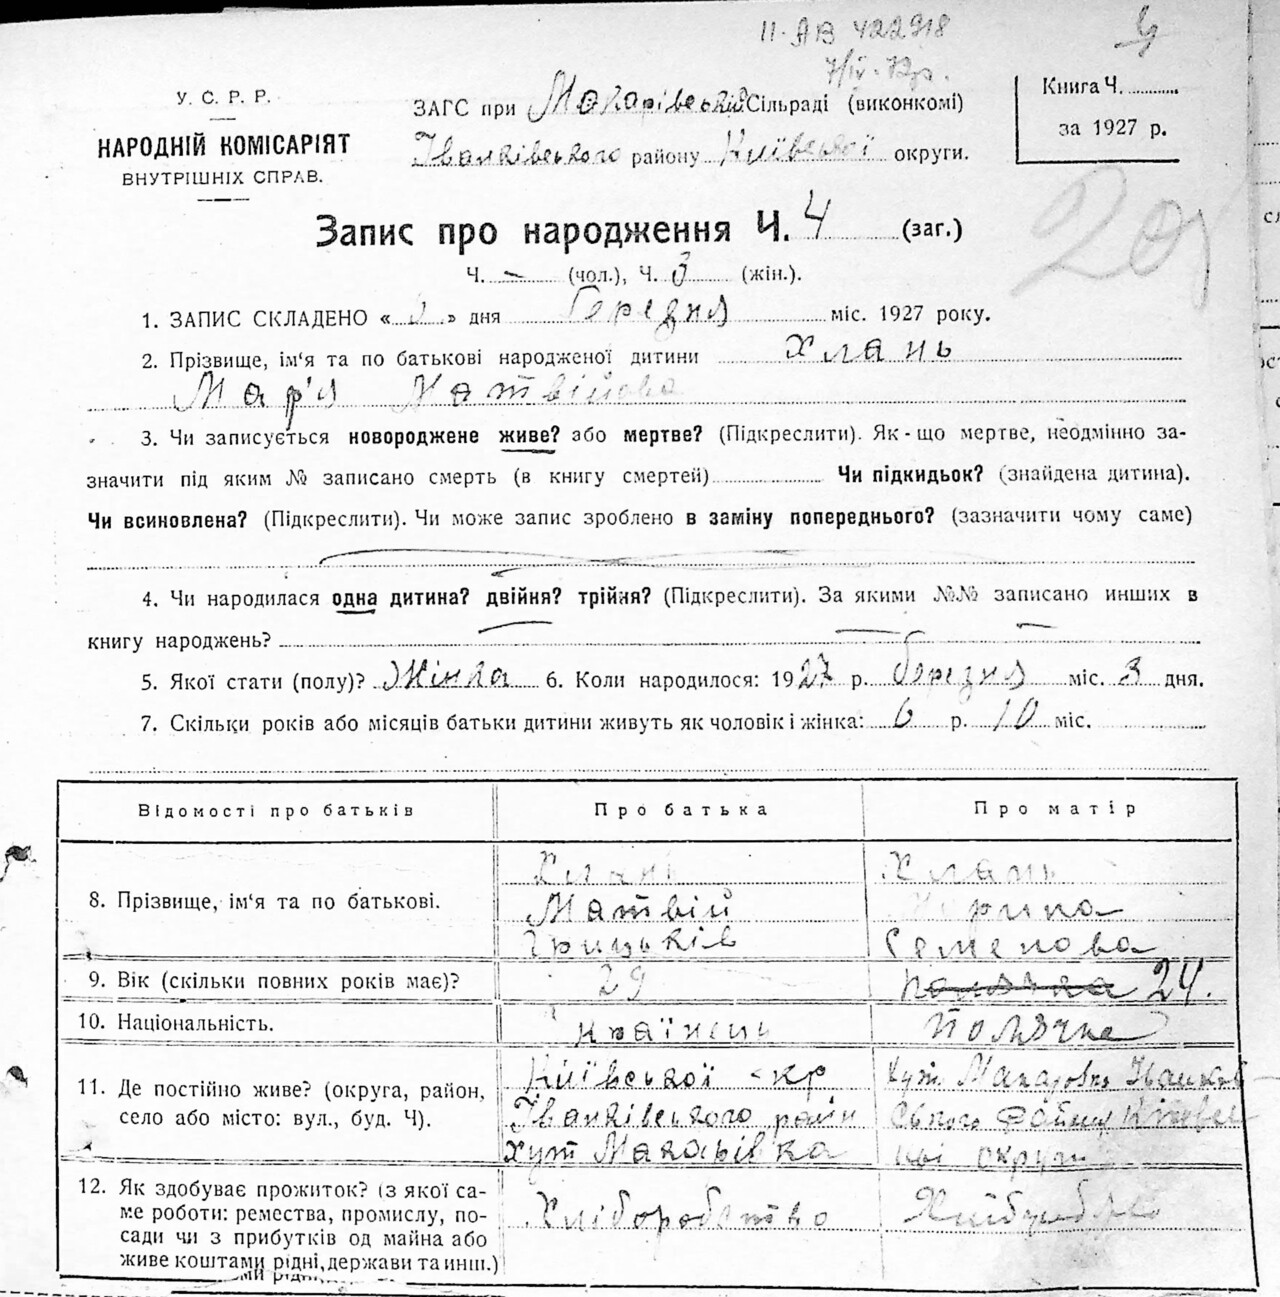 ІІ-АВ 422918
7/IV-72р.
У. С. Р. Р.
НАРОДНІЙ КОМІСАРІЯТ
ВНУТРІШНІХ СПРАВ.
ЗАГС при Макарівській Сільраді (виконкомі)
Іванківського району Київської округи.
Книга Ч.
за 1927 р.
Запис про народження Ч. 4 (заг.)
20
Ч. – (чол.), Ч. 3 (жін.).
1. ЗАПИС СКЛАДЕНО « » дня березня міс. 1927 року.
2. Прізвище, ім'я та по батькові народженої дитини Хлань
Мар'я Матвійова
3. Чи записується новороджене живе? або мертве? (Підкреслити). Як-що мертве, неодмінно за-
значити під яким № записано смерть (в книгу смертей) Чи підкидьок? (знайдена дитина).
Чи всиновлена? (Підкреслити). Чи може запис зроблено в заміну попереднього? (зазначити чому саме)
4. Чи народилася одна дитина? двійня? трійня? (Підкреслити). За якими №№ записано инших в
книгу народжень?
5. Якої стати (полу)? Жінка 6. Коли народилося: 1927 р. березня міс. 3 дня.
7. Скільки років або місяців батьки дитини живуть як чоловік і жінка: 6 р. 10 міс.
Відомості про батьків Про батька Про матір
8. Прізвище, ім'я та по батькові.
Хлань
Матвій
Грицьків
Хлань
Марина
Семенова
9. Вік (скільки повних років має)? 29 полячка 24.
10. Національність. Українець Полячка
11. Де постійно живе? (округа, район,
село або місто: вул., буд. Ч).
Київської окр
Іванківського райн
хут Макарівка
Хут. Макаровка Іванків
ського району Київсь
кої округи
12. Як здобуває прожиток? (з якої са-
ме роботи: ремества, промислу, по-
сади чи з прибутків од майна або
живе коштами рідні, держави та инш.)
Хліборобство